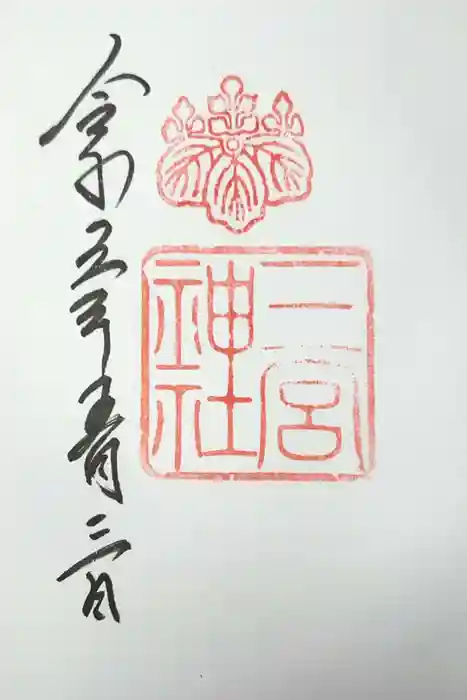 二宮
神社
令和五年正月三日